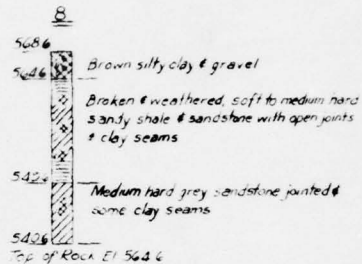 8
568.6
Brown silty clay & gravel
564.6
Broken & weathered, soft to medium hard
sandy shale & sandstone with open joints
& clay seams
Medium hard grey sandstone jointed &
some clay seams
540.6
Top of Rock El 564.6